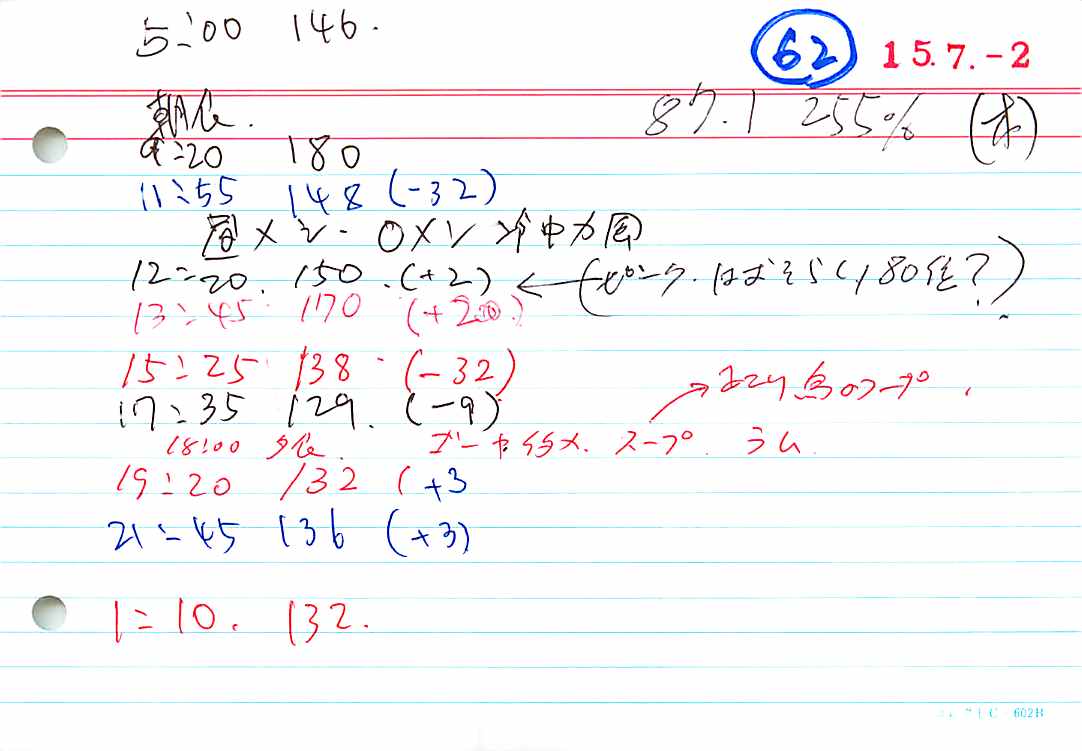 5:00 146.
62 15.7.-2
朝食.
87.1 255% (木)
9:20 180
11:55 148 (-32)
昼メシ. 0メン 冷中力
12:20. 150. (+2) ← (ピーク. はおそらく180位?)
13:45 170 (+20)
15:25 138 (-32)
17:35 129. (-9)
→ 鳥のスープ.
18:00 夕食. ゴーヤ スープ. ラム
19:20 132 (+3
21:45 136 (+3)
1:10. 132.
C 602B